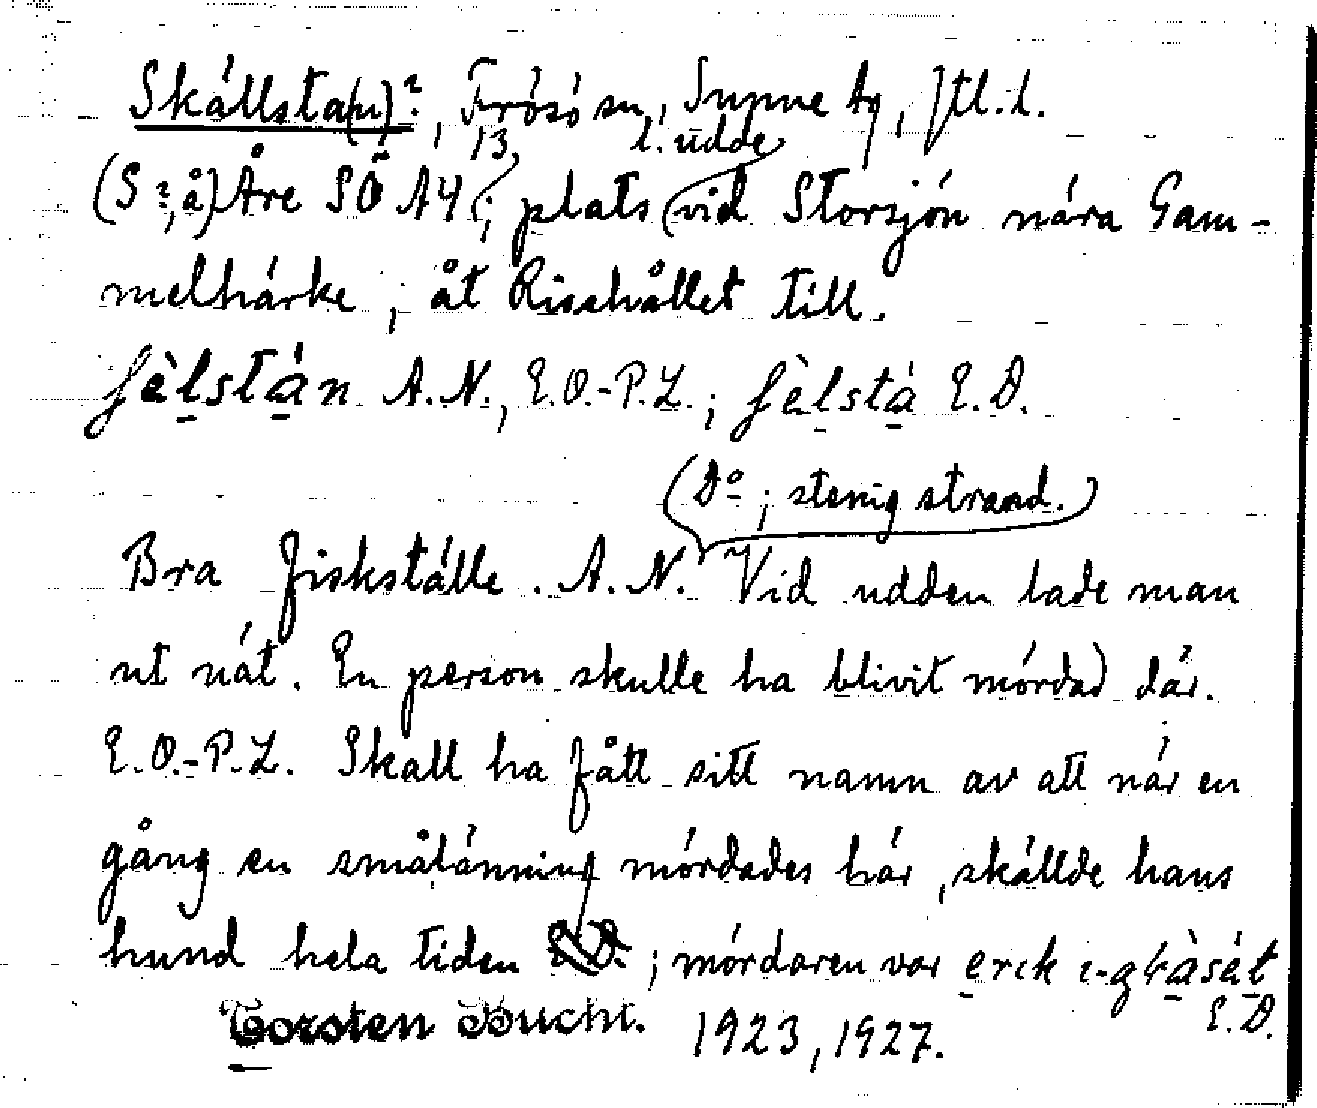 Skällsta(n)?, Frösö sn, Sunne tg, Jtl. l.
13. l. udde
(S ?, å) Åre SÖ A4; plats (vid Storsjön nära Gam-
melhärke, åt Risshållet till.
ʃèlstán A.N., E.O.-P.L.; ʃèlstá E.D.
(Do; stenig strand.)
Bra fiskställe. A.N. Vid udden lade man
ut nät. En person skulle ha blivit mördad där.
E.O.-P.L. Skall ha fått sitt namn av att när en
gång en smålänning mördades här, skällde hans
hund hela tiden E.D.; mördaren var
E.D.
Torsten Bucht. 1923, 1927.